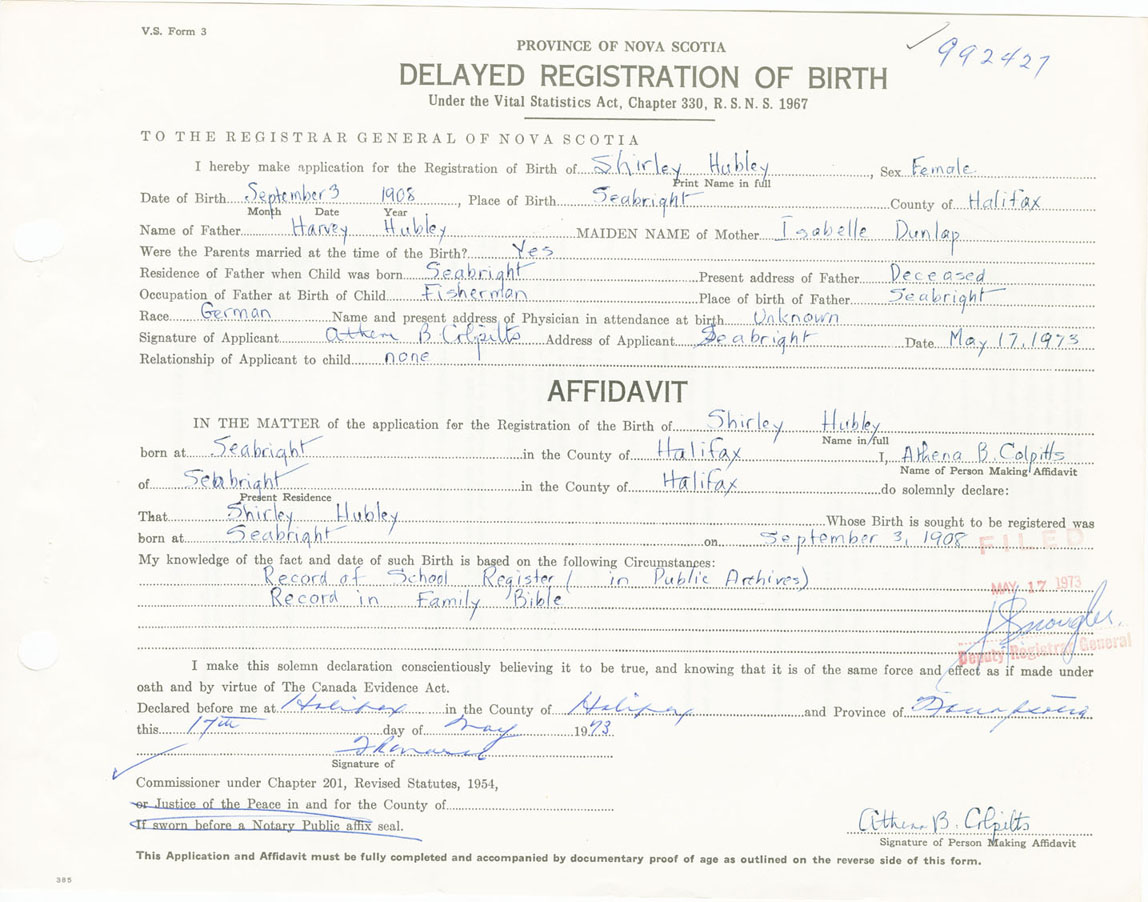 V.S. Form 3
992427
PROVINCE OF NOVA SCOTIA
DELAYED REGISTRATION OF BIRTH
Under the Vital Statistics Act, Chapter 330, R. S. N. S. 1967
TO THE REGISTRAR GENERAL OF NOVA SCOTIA
I hereby make application for the Registration of Birth of Shirley Hubley, Sex Female
Print Name in full
Date of Birth September 3 1908, Place of Birth Seabright County of Halifax
Month Date Year
Name of Father Harvey Hubley MAIDEN NAME of Mother Isabelle Dunlap
Were the Parents married at the time of the Birth? Yes
Residence of Father when Child was born Seabright Present address of Father Deceased
Occupation of Father at Birth of Child Fisherman Place of birth of Father Seabright
Race German Name and present address of Physician in attendance at birth Unknown
Signature of Applicant Athena B Colpitts Address of Applicant Seabright Date May 17, 1973
Relationship of Applicant to child none
AFFIDAVIT
IN THE MATTER of the application for the Registration of the Birth of Shirley Hubley
Name in full
born at Seabright in the County of Halifax I, Athena B. Colpitts
Name of Person Making Affidavit
of Seabright in the County of Halifax do solemnly declare:
Present Residence
That Shirley Hubley Whose Birth is sought to be registered was
born at Seabright on September 3, 1908
FILED
My knowledge of the fact and date of such Birth is based on the following Circumstances:
Record of School Register ( in Public Archives)
MAY 17 1973
Record in Family Bible
Deputy Registrar General
I make this solemn declaration conscientiously believing it to be true, and knowing that it is of the same force and effect as if made under
oath and by virtue of The Canada Evidence Act.
Declared before me at Halifax in the County of Halifax and Province of Nova Scotia
this 17th day of May 1973
Signature of
Commissioner under Chapter 201, Revised Statutes, 1954,
or Justice of the Peace in and for the County of
If sworn before a Notary Public affix seal.
Athena B. Colpitts
Signature of Person Making Affidavit
This Application and Affidavit must be fully completed and accompanied by documentary proof of age as outlined on the reverse side of this form.
385